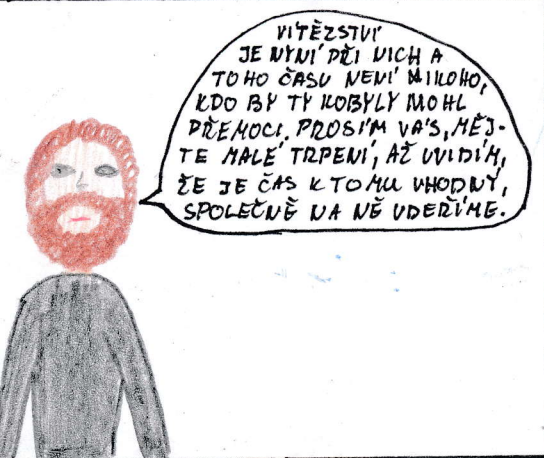 VITĚZSTVÍ
JE NYNÍ PŘI NICH A
TOHO ČASU NENÍ NIKOHO,
KDO BY TY KOBYLY MOHL
PŘEMOCI. PROSÍM VÁS, MĚJ-
TE MALÉ TRPENÍ, AŽ UVIDÍM,
ŽE JE ČAS K TOMU VHODNÝ,
SPOLEČNĚ NA NĚ UDEŘÍME.